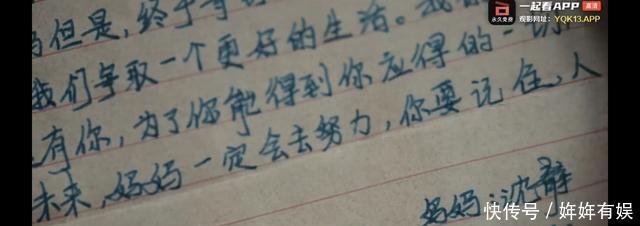 一起看APP 高清
永久免费 观影网址：YQK13.APP
但是，终于
我们争取一个更好的生活。我
有你，为了你能得到你应得的一
未来，妈妈一定会去努力，你要记住，人
妈妈：沈静
快传号／姩姩有娱